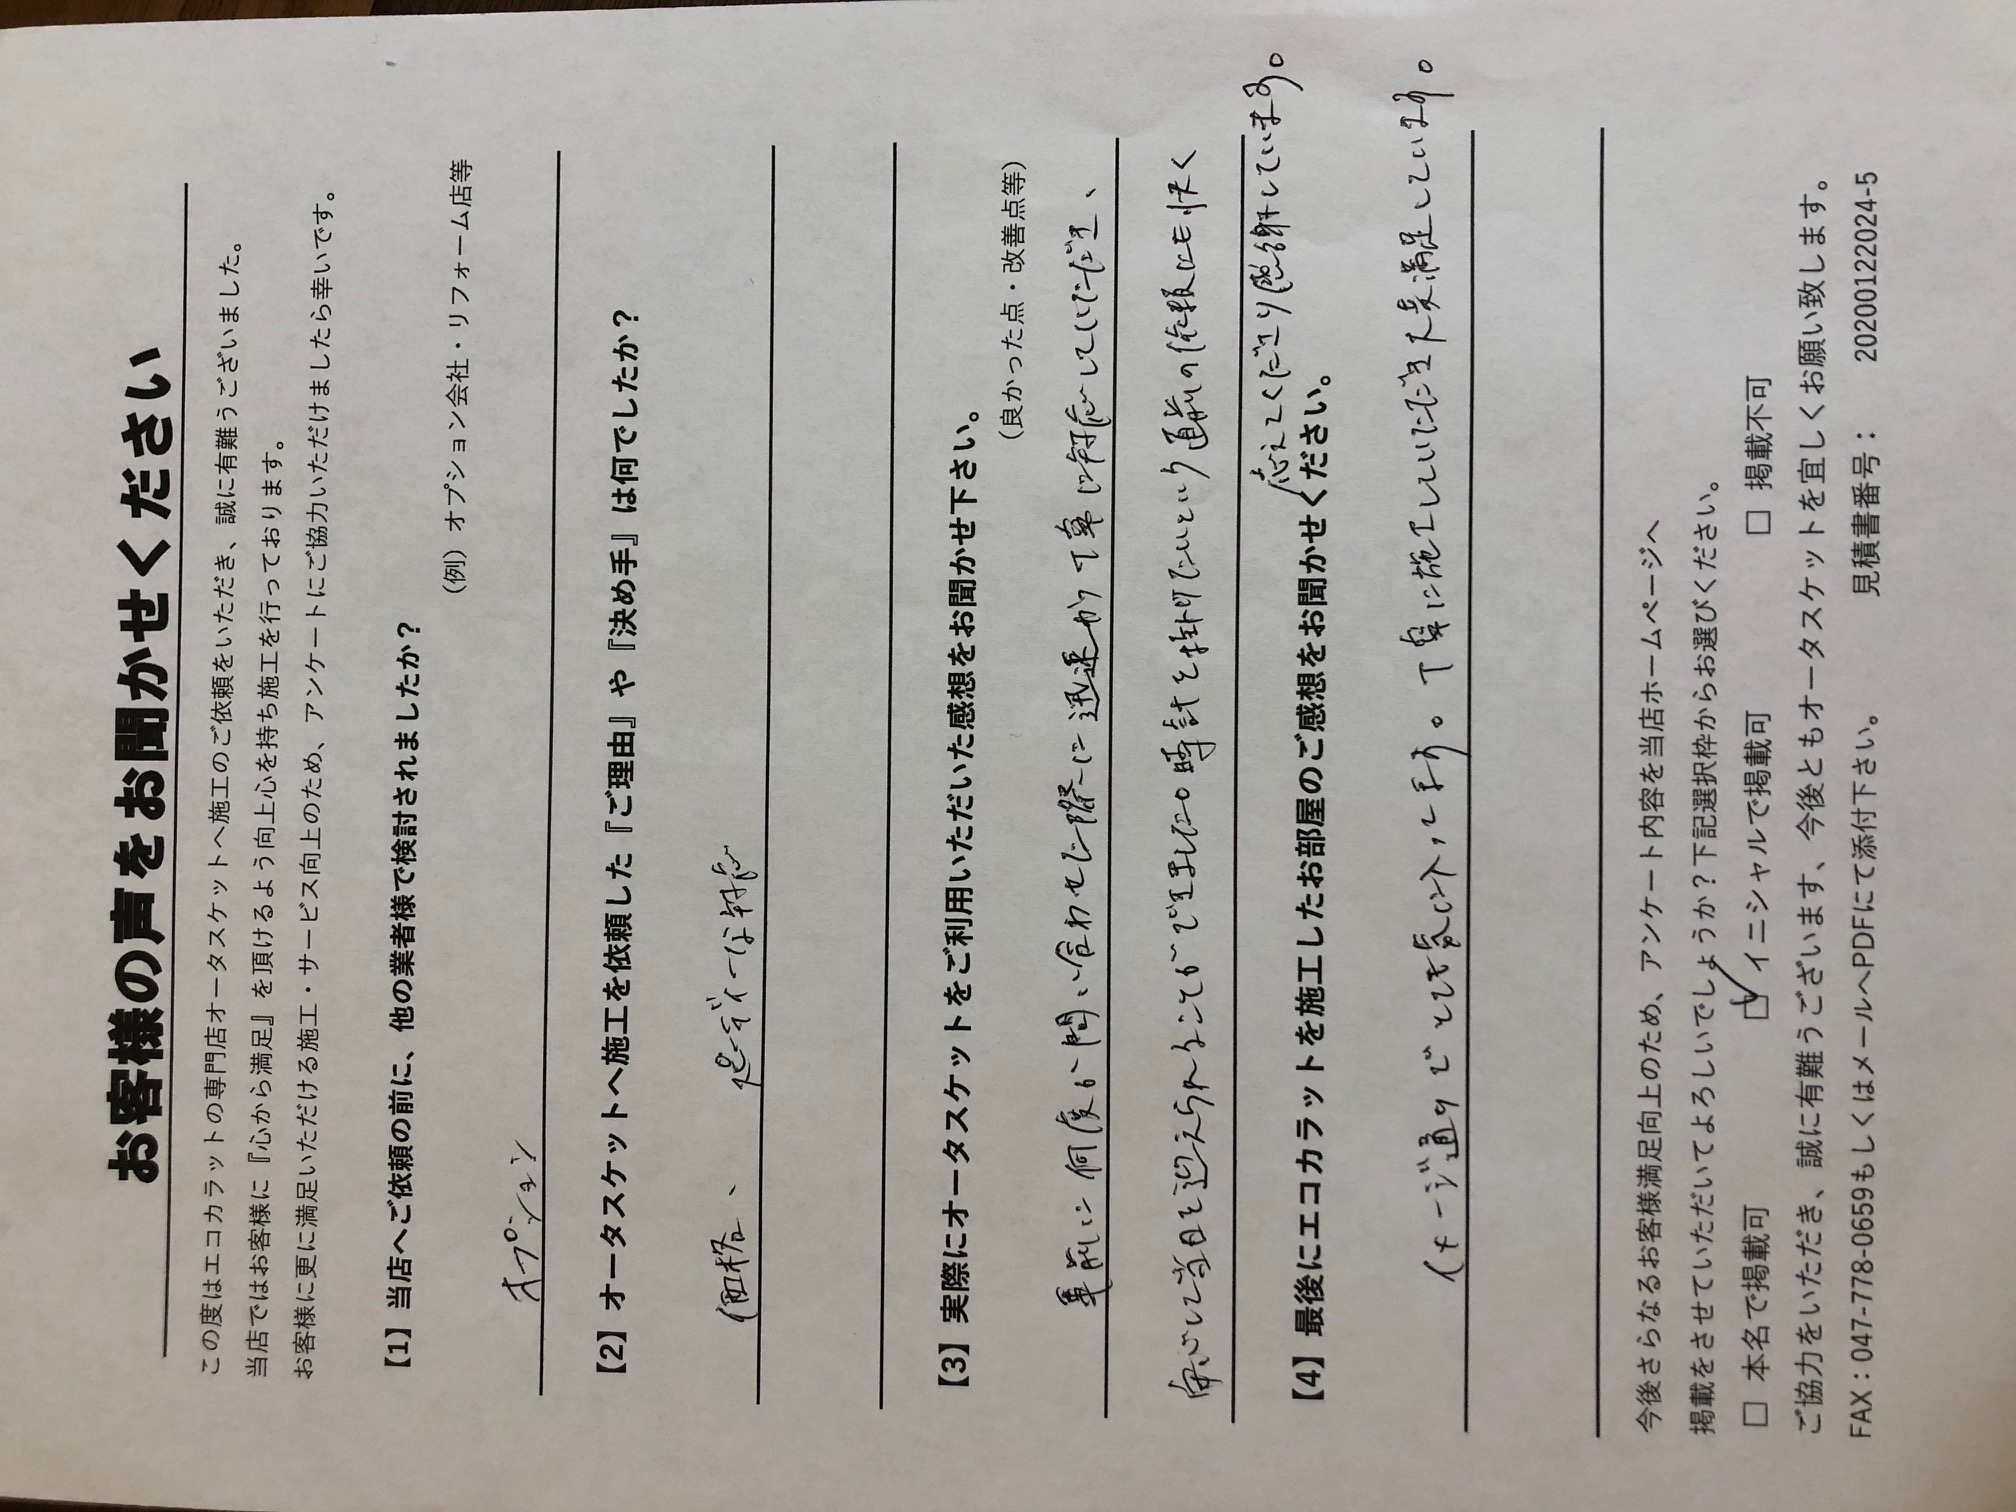 お客様の声をお聞かせください
この度はエコカラットの専門店オータスケットへ施工のご依頼をいただき、誠に有難うございました。
当店ではお客様に『心から満足』を頂けるよう向上心を持ち施工を行っております。
お客様に更に満足いただける施工・サービス向上のため、アンケートにご協力いただけましたら幸いです。
【1】当店へご依頼の前に、他の業者様で検討されましたか?
(例)オプション会社・リフォーム店等
オプション
【2】オータスケットへ施工を依頼した『ご理由』や『決め手』は何でしたか?
価格、スピーディーな対応
【3】実際にオータスケットをご利用いただいた感想をお聞かせ下さい。
(良かった点・改善点等)
事前に何度か問い合わせた際に迅速かつ丁寧に対応していただき、
安心して当日を迎えられることができました。時計を掛けたいという直前の依頼にも快く
応えてくださり感謝しています。
【4】最後にエコカラットを施工したお部屋のご感想をお聞かせください。
イメージ通りでとても気に入ってます。丁寧に施工していただき大変満足しています。
今後さらなるお客様満足向上のため、アンケート内容を当店ホームページへ
掲載をさせていただいてよろしいでしょうか?下記選択枠からお選びください。
□ 本名で掲載可 ☑ イニシャルで掲載可 □ 掲載不可
ご協力をいただき、誠に有難うございます、今後ともオータスケットを宜しくお願い致します。
FAX:047-778-0659もしくはメールへPDFにて添付下さい。 見積書番号: 20200122024-5